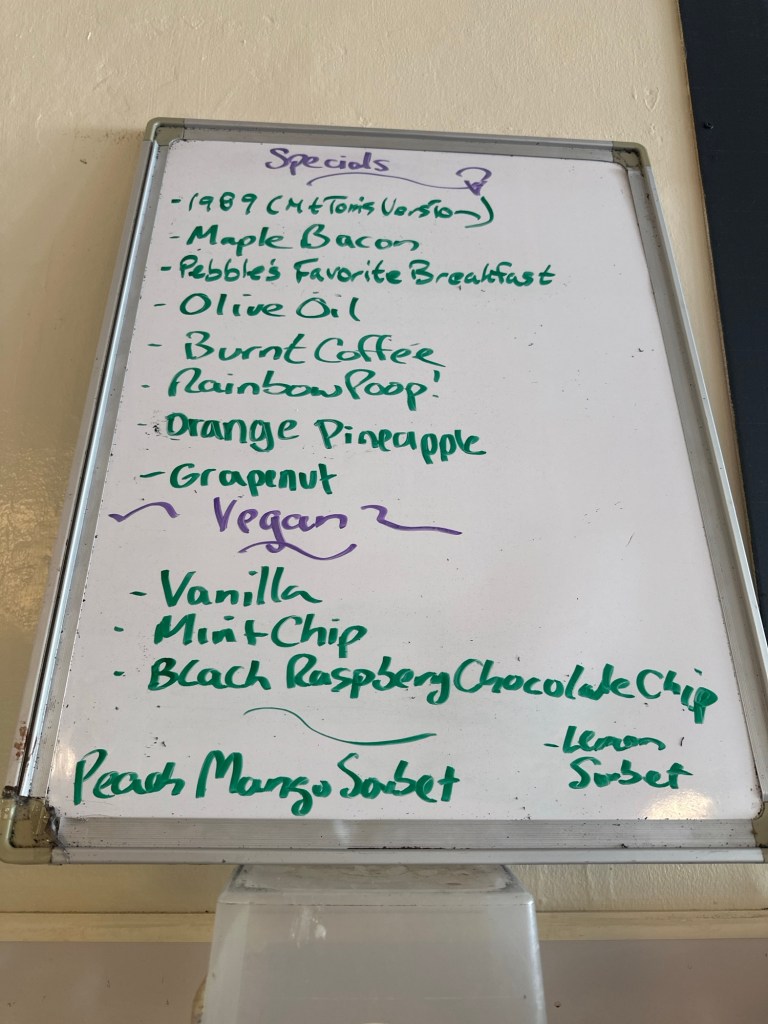 Specials
- 1989 (Mt Tom's Version)
- Maple Bacon
- Pebble's Favorite Breakfast
- Olive Oil
- Burnt Coffee
- Rainbow Poop!
- Orange Pineapple
- Grapenut
Vegan
- Vanilla
- Mint Chip
- Black Raspberry Chocolate Chip
Peach Mango Sorbet
- Lemon
Sorbet